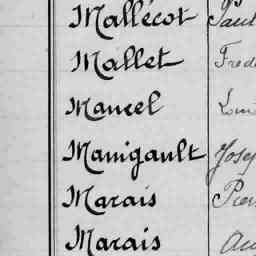 Mallécot Paul
Mallet Fred
Mancel Loui
Manigault Josep
Marais Pier
Marais Au